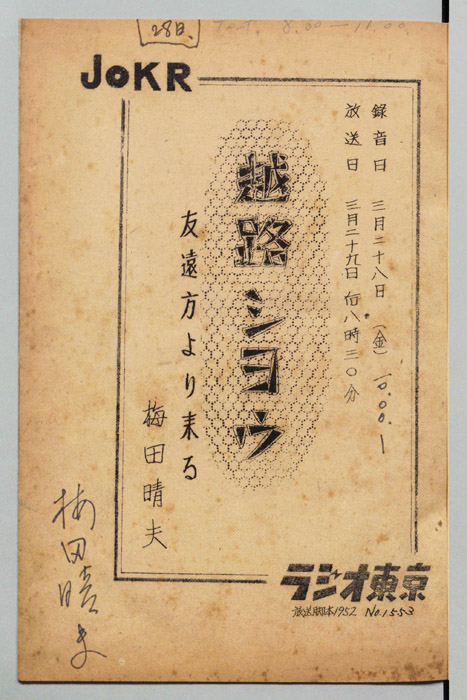 28日.
8.00—11.00
JOKR
録音日 三月二十八日(金) 10.00.—
放送日 三月二十九日 后八時三〇分
越路ショウ
友遠方より来る
梅田晴夫
梅田晴夫
ラジオ東京
放送脚本1952 No.1553